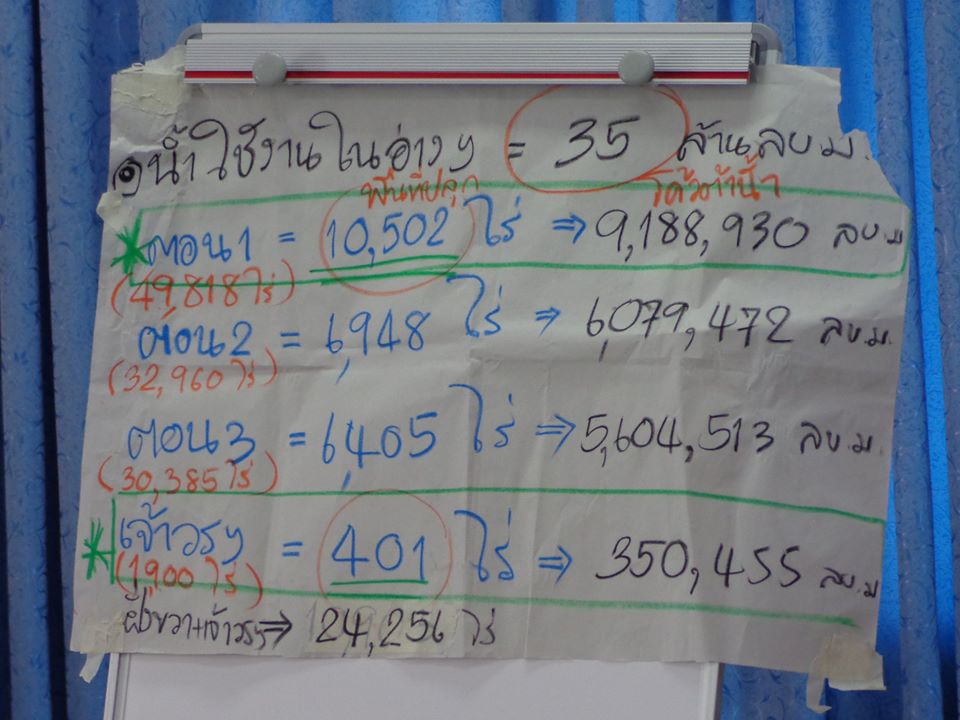 น้ำใช้งานในอ่างฯ = 35 ล้านลบ.ม.
พื้นที่ปลูก โควต้าน้ำ
* ตอน1 = 10,502 ไร่ ⇒ 9,188,930 ลบ.ม
(49,818 ไร่)
ตอน2 = 6,948 ไร่ ⇒ 6,079,472 ลบ.ม.
(32,960 ไร่)
ตอน3 = 6,405 ไร่ ⇒ 5,604,513 ลบ.ม.
(30,385 ไร่)
* เจ้าวรฯ = 401 ไร่ ⇒ 350,455 ลบ.ม
(1,900 ไร่)
ฝั่งขวา+เจ้าวรฯ ⇒ 24,256 ไร่